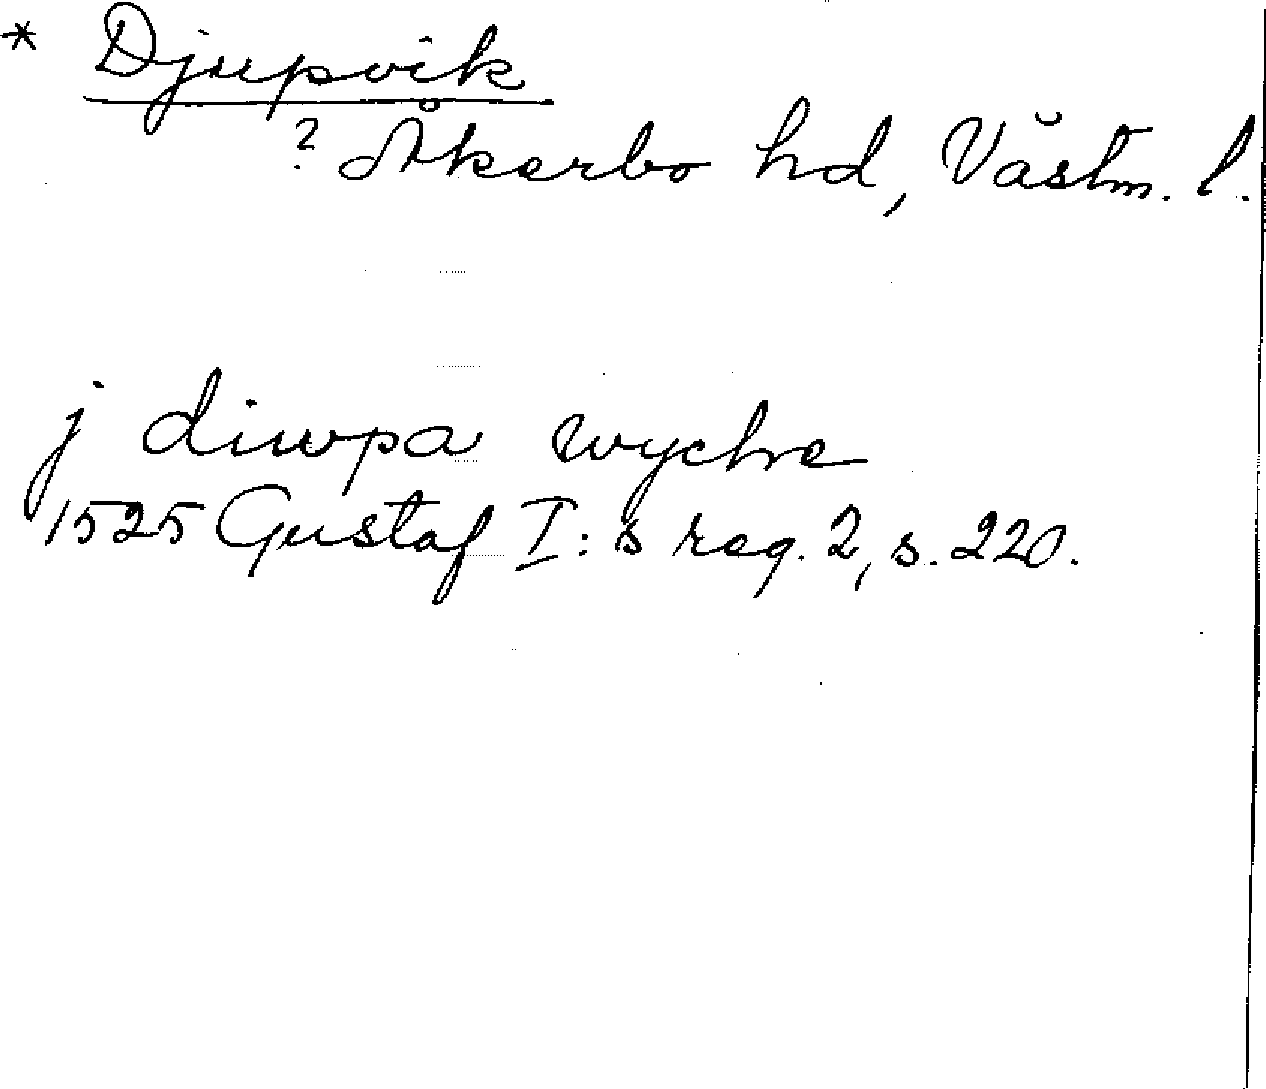 * Djupvik
? Åkerbo hd, Västm. l.
j diwpa wycke
1525 Gustaf I:s reg. 2, s. 220.